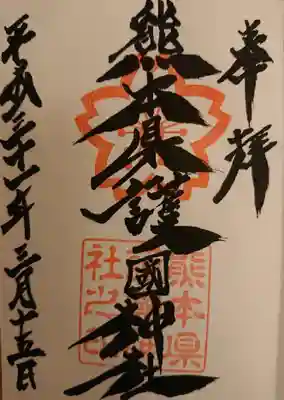 奉拝
熊本県護國神社
平成三十一年三月十五日
熊本県
社之印